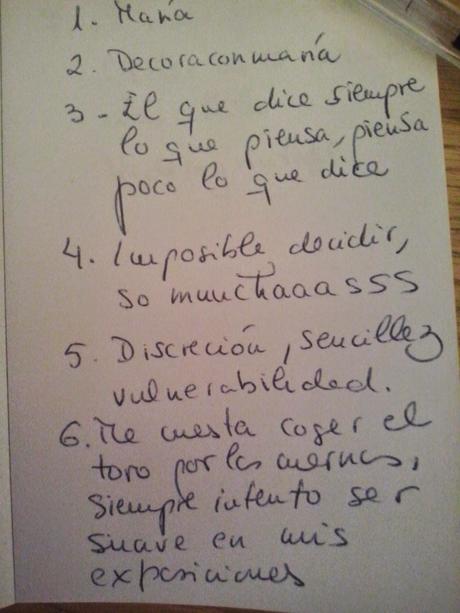 1. María
2. Decoraconmaría
3-El que dice siempre
lo que piensa, piensa
poco lo que dice
4. Imposible decidir,
so muuchaaasss
5. Discreción, sencillez
vulnerabilidad.
6. Me cuesta coger el
toro por los cuernos,
siempre intento ser
suave en mis
exposiciones